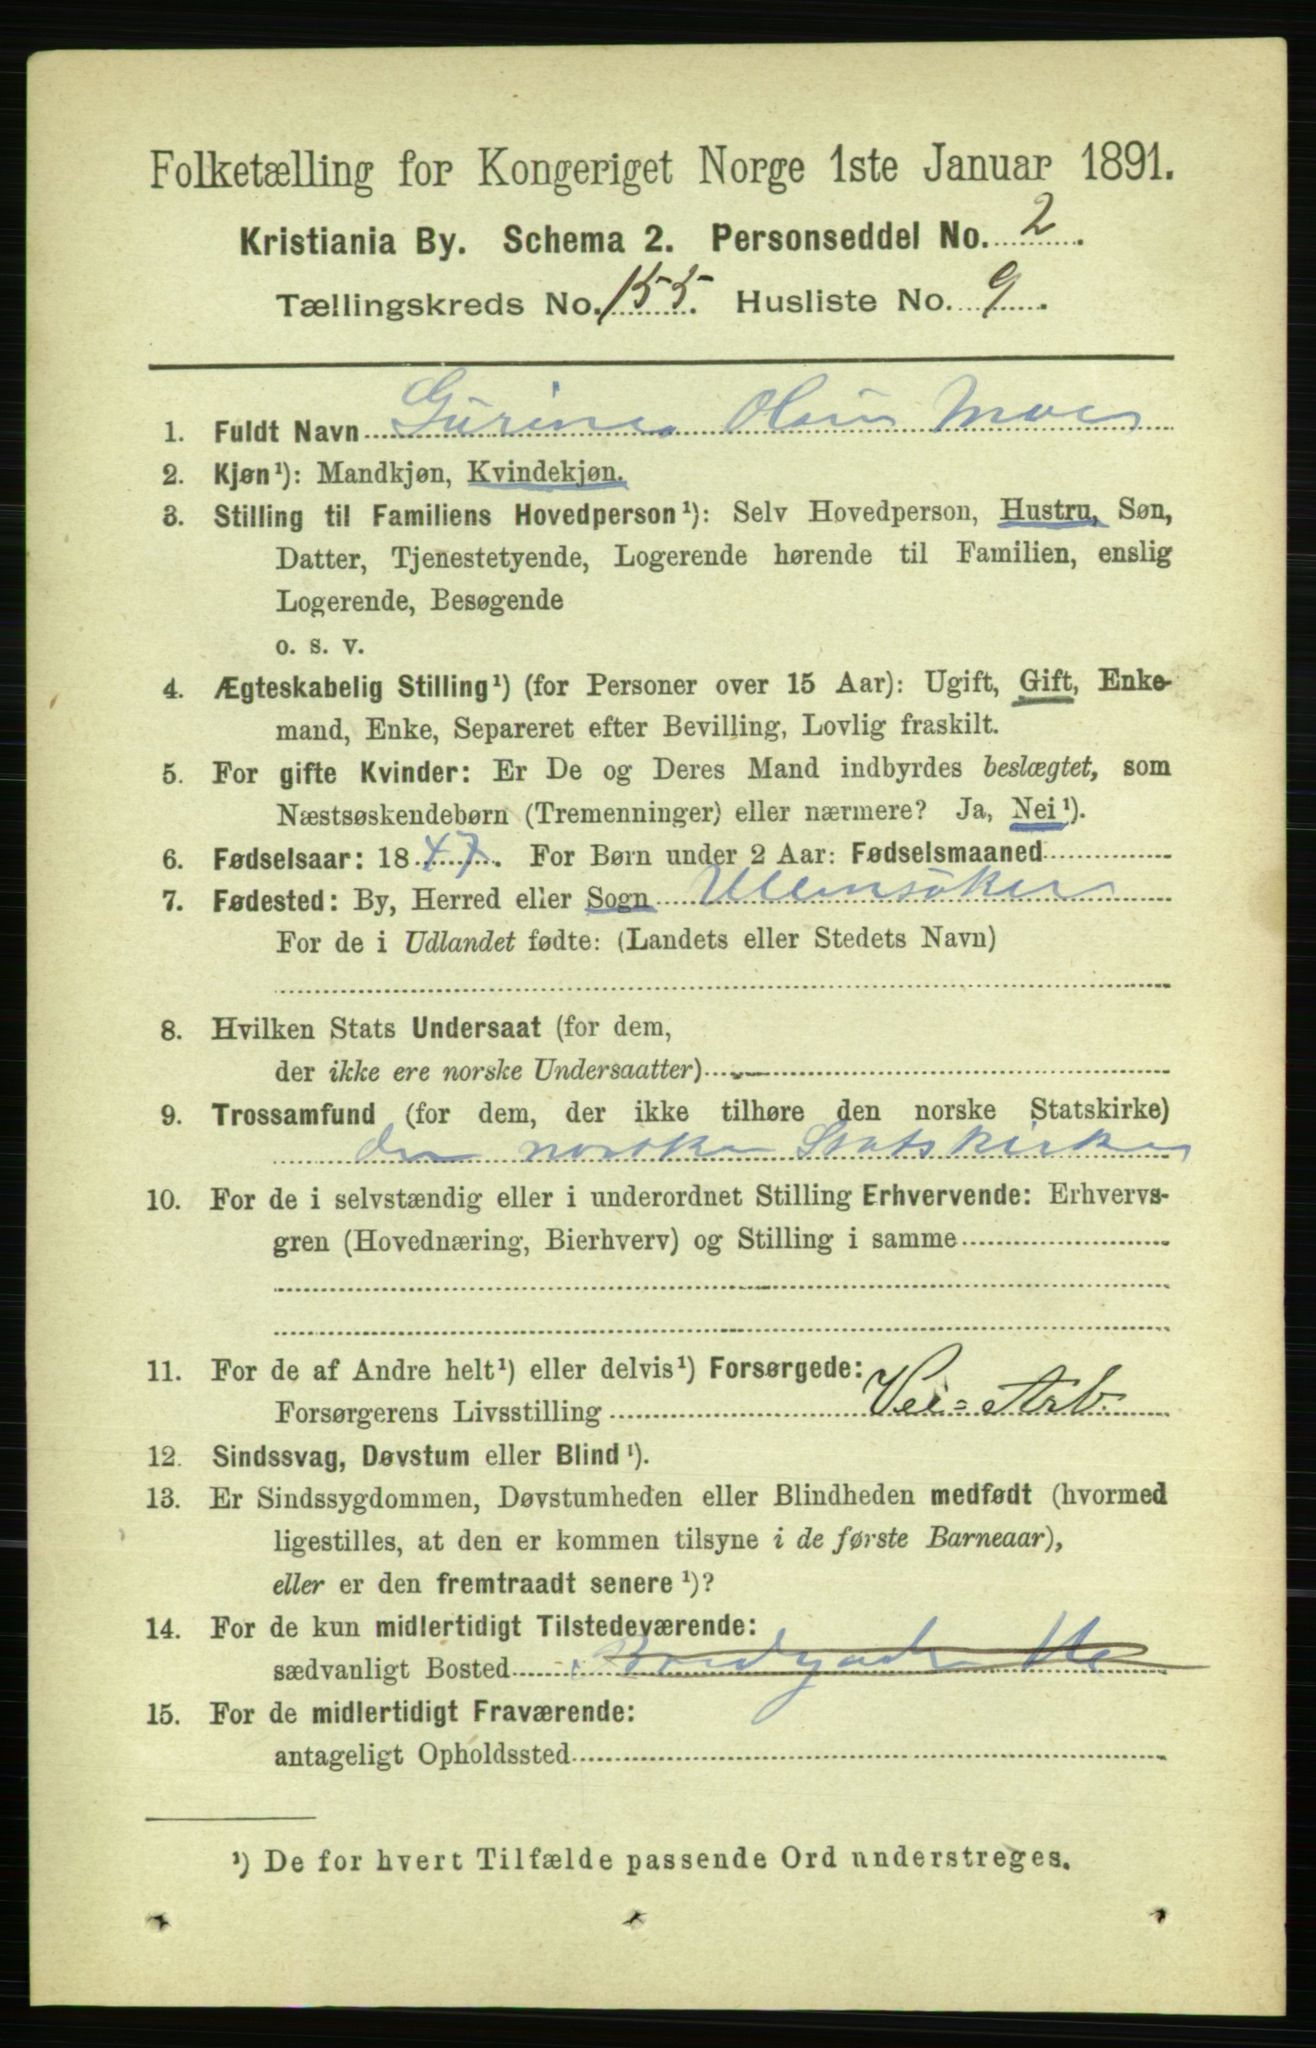 Folketælling for Kongeriget Norge 1ste Januar 1891.
Kristiania By. Schema 2. Personseddel No. 2.
Tællingskreds No. 155. Husliste No. 9.
1. Fuldt Navn Gurine Olsen Moe
2. Kjøn¹): Mandkjøn, Kvindekjøn.
3. Stilling til Familiens Hovedperson¹): Selv Hovedperson, Hustru, Søn,
Datter, Tjenestetyende, Logerende hørende til Familien, enslig
Logerende, Besøgende
o. s. v.
4. Ægteskabelig Stilling¹) (for Personer over 15 Aar): Ugift, Gift, Enke-
mand, Enke, Separeret efter Bevilling, Lovlig fraskilt.
5. For gifte Kvinder: Er De og Deres Mand indbyrdes beslægtet, som
Næstsøskendebørn (Tremenninger) eller nærmere? Ja, Nei¹).
6. Fødselsaar: 1847. For Børn under 2 Aar: Fødselsmaaned
7. Fødested: By, Herred eller Sogn Ullensöker
For de i Udlandet fødte: (Landets eller Stedets Navn)
8. Hvilken Stats Undersaat (for dem,
der ikke ere norske Undersaatter)
9. Trossamfund (for dem, der ikke tilhøre den norske Statskirke)
den norske Statskirke
10. For de i selvstændig eller i underordnet Stilling Erhvervende: Erhvervs-
gren (Hovednæring, Bierhverv) og Stilling i samme
11. For de af Andre helt¹) eller delvis¹) Forsørgede:
Forsørgerens Livsstilling Vei-Arb.
12. Sindssvag, Døvstum eller Blind¹).
13. Er Sindssygdommen, Døvstumheden eller Blindheden medfødt (hvormed
ligestilles, at den er kommen tilsyne i de første Barneaar),
eller er den fremtraadt senere¹)?
14. For de kun midlertidigt Tilstedeværende:
sædvanligt Bosted
15. For de midlertidigt Fraværende:
antageligt Opholdssted
¹) De for hvert Tilfælde passende Ord understreges.